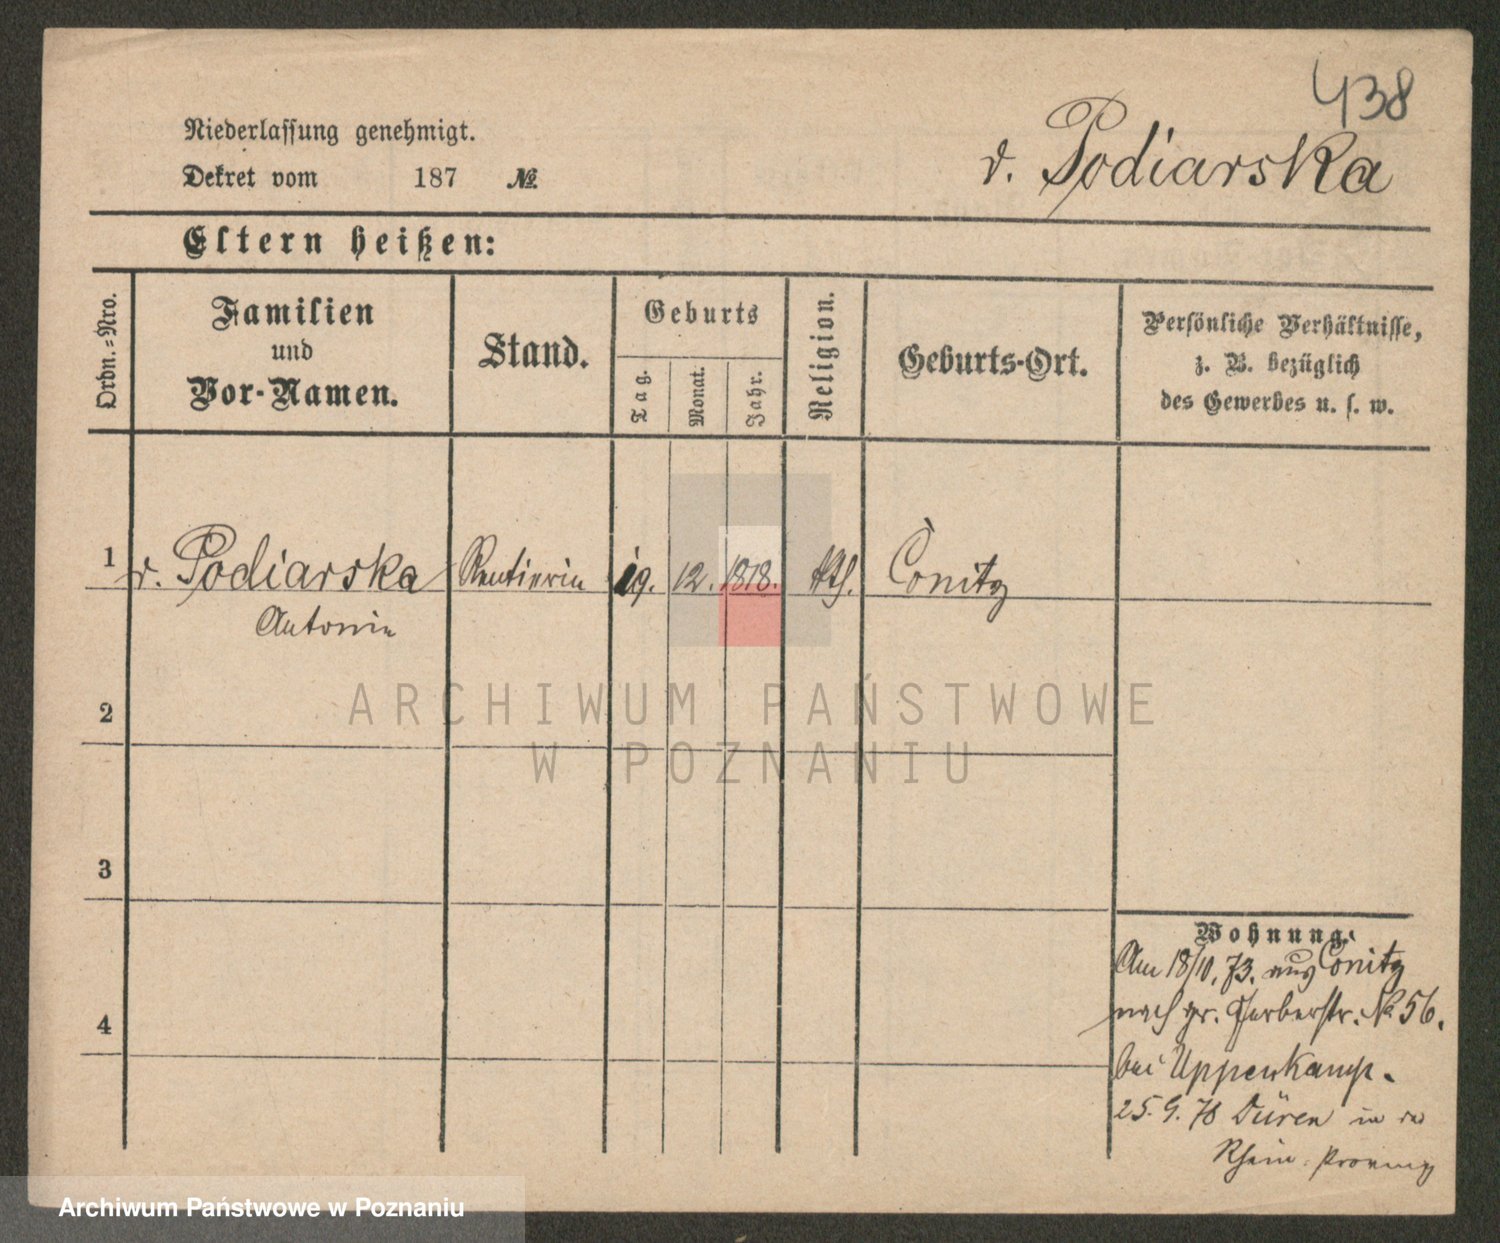 438
Niederlassung genehmigt.
v. Podiarska
Dekret vom 187 №
Eltern heißen:
Ordn.-Nro.
Familien
und
Vor-Namen.
Stand.
Geburts
Tag.
Monat.
Jahr.
Religion.
Geburts-Ort.
Persönliche Verhältnisse,
z. B. bezüglich
des Gewerbes u. s. w.
1 v. Podiarska Rentierin 19. 12. 1818. kth. Conitz
Antonie
ARCHIWUM PAŃSTWOWE
W POZNANIU
2
3
4
Wohnung:
Am 18/10. 73. aus Conitz
nach gr. Gerberstr. № 56.
bei Uppenkamp.
25. 9. 78 Düren in der
Rhein. Provinz
Archiwum Państwowe w Poznaniu